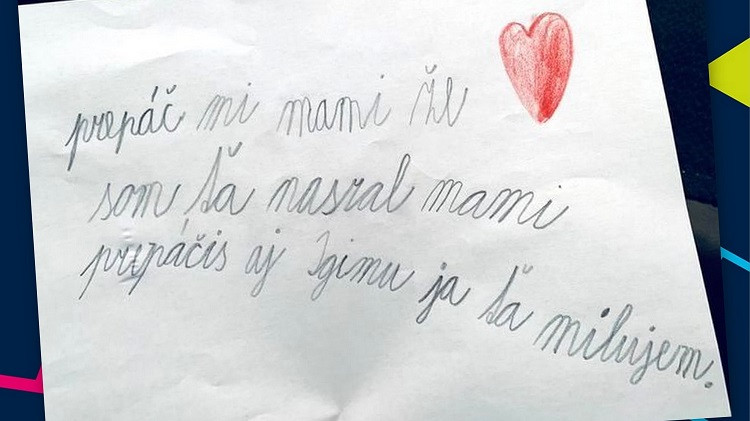 prepáč mi mami že
som ťa nasral mami
prepáčis aj Igimu ja ťa milujem.